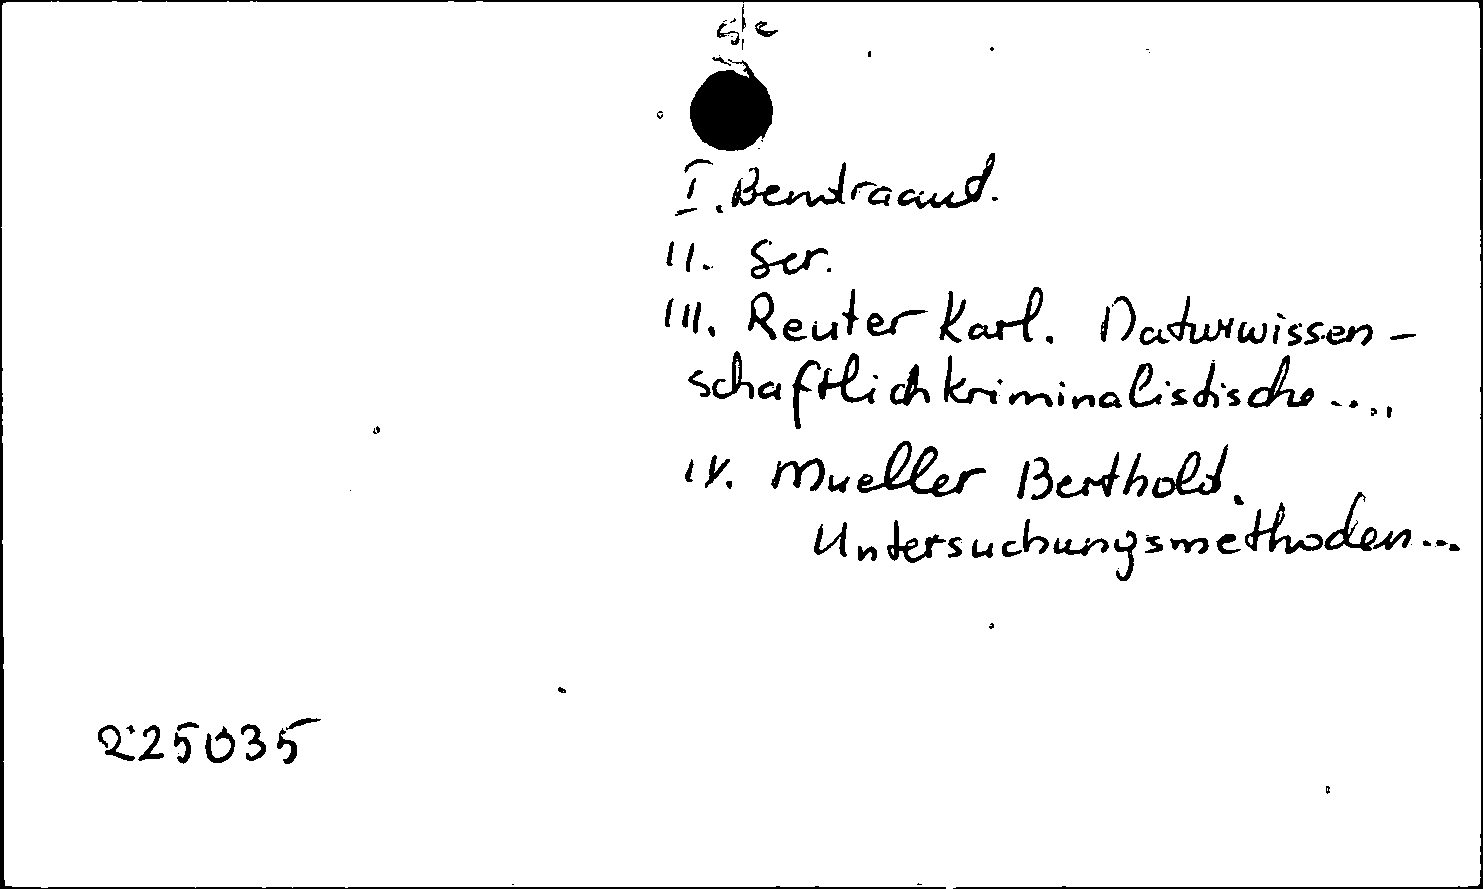 I. Bemdraaud.
II. Ser.
III. Reuter Karl. Naturwissen-
schaftlichkriminalistische....
IV. Mueller Berthold.
Untersuchungsmethoden...
225035